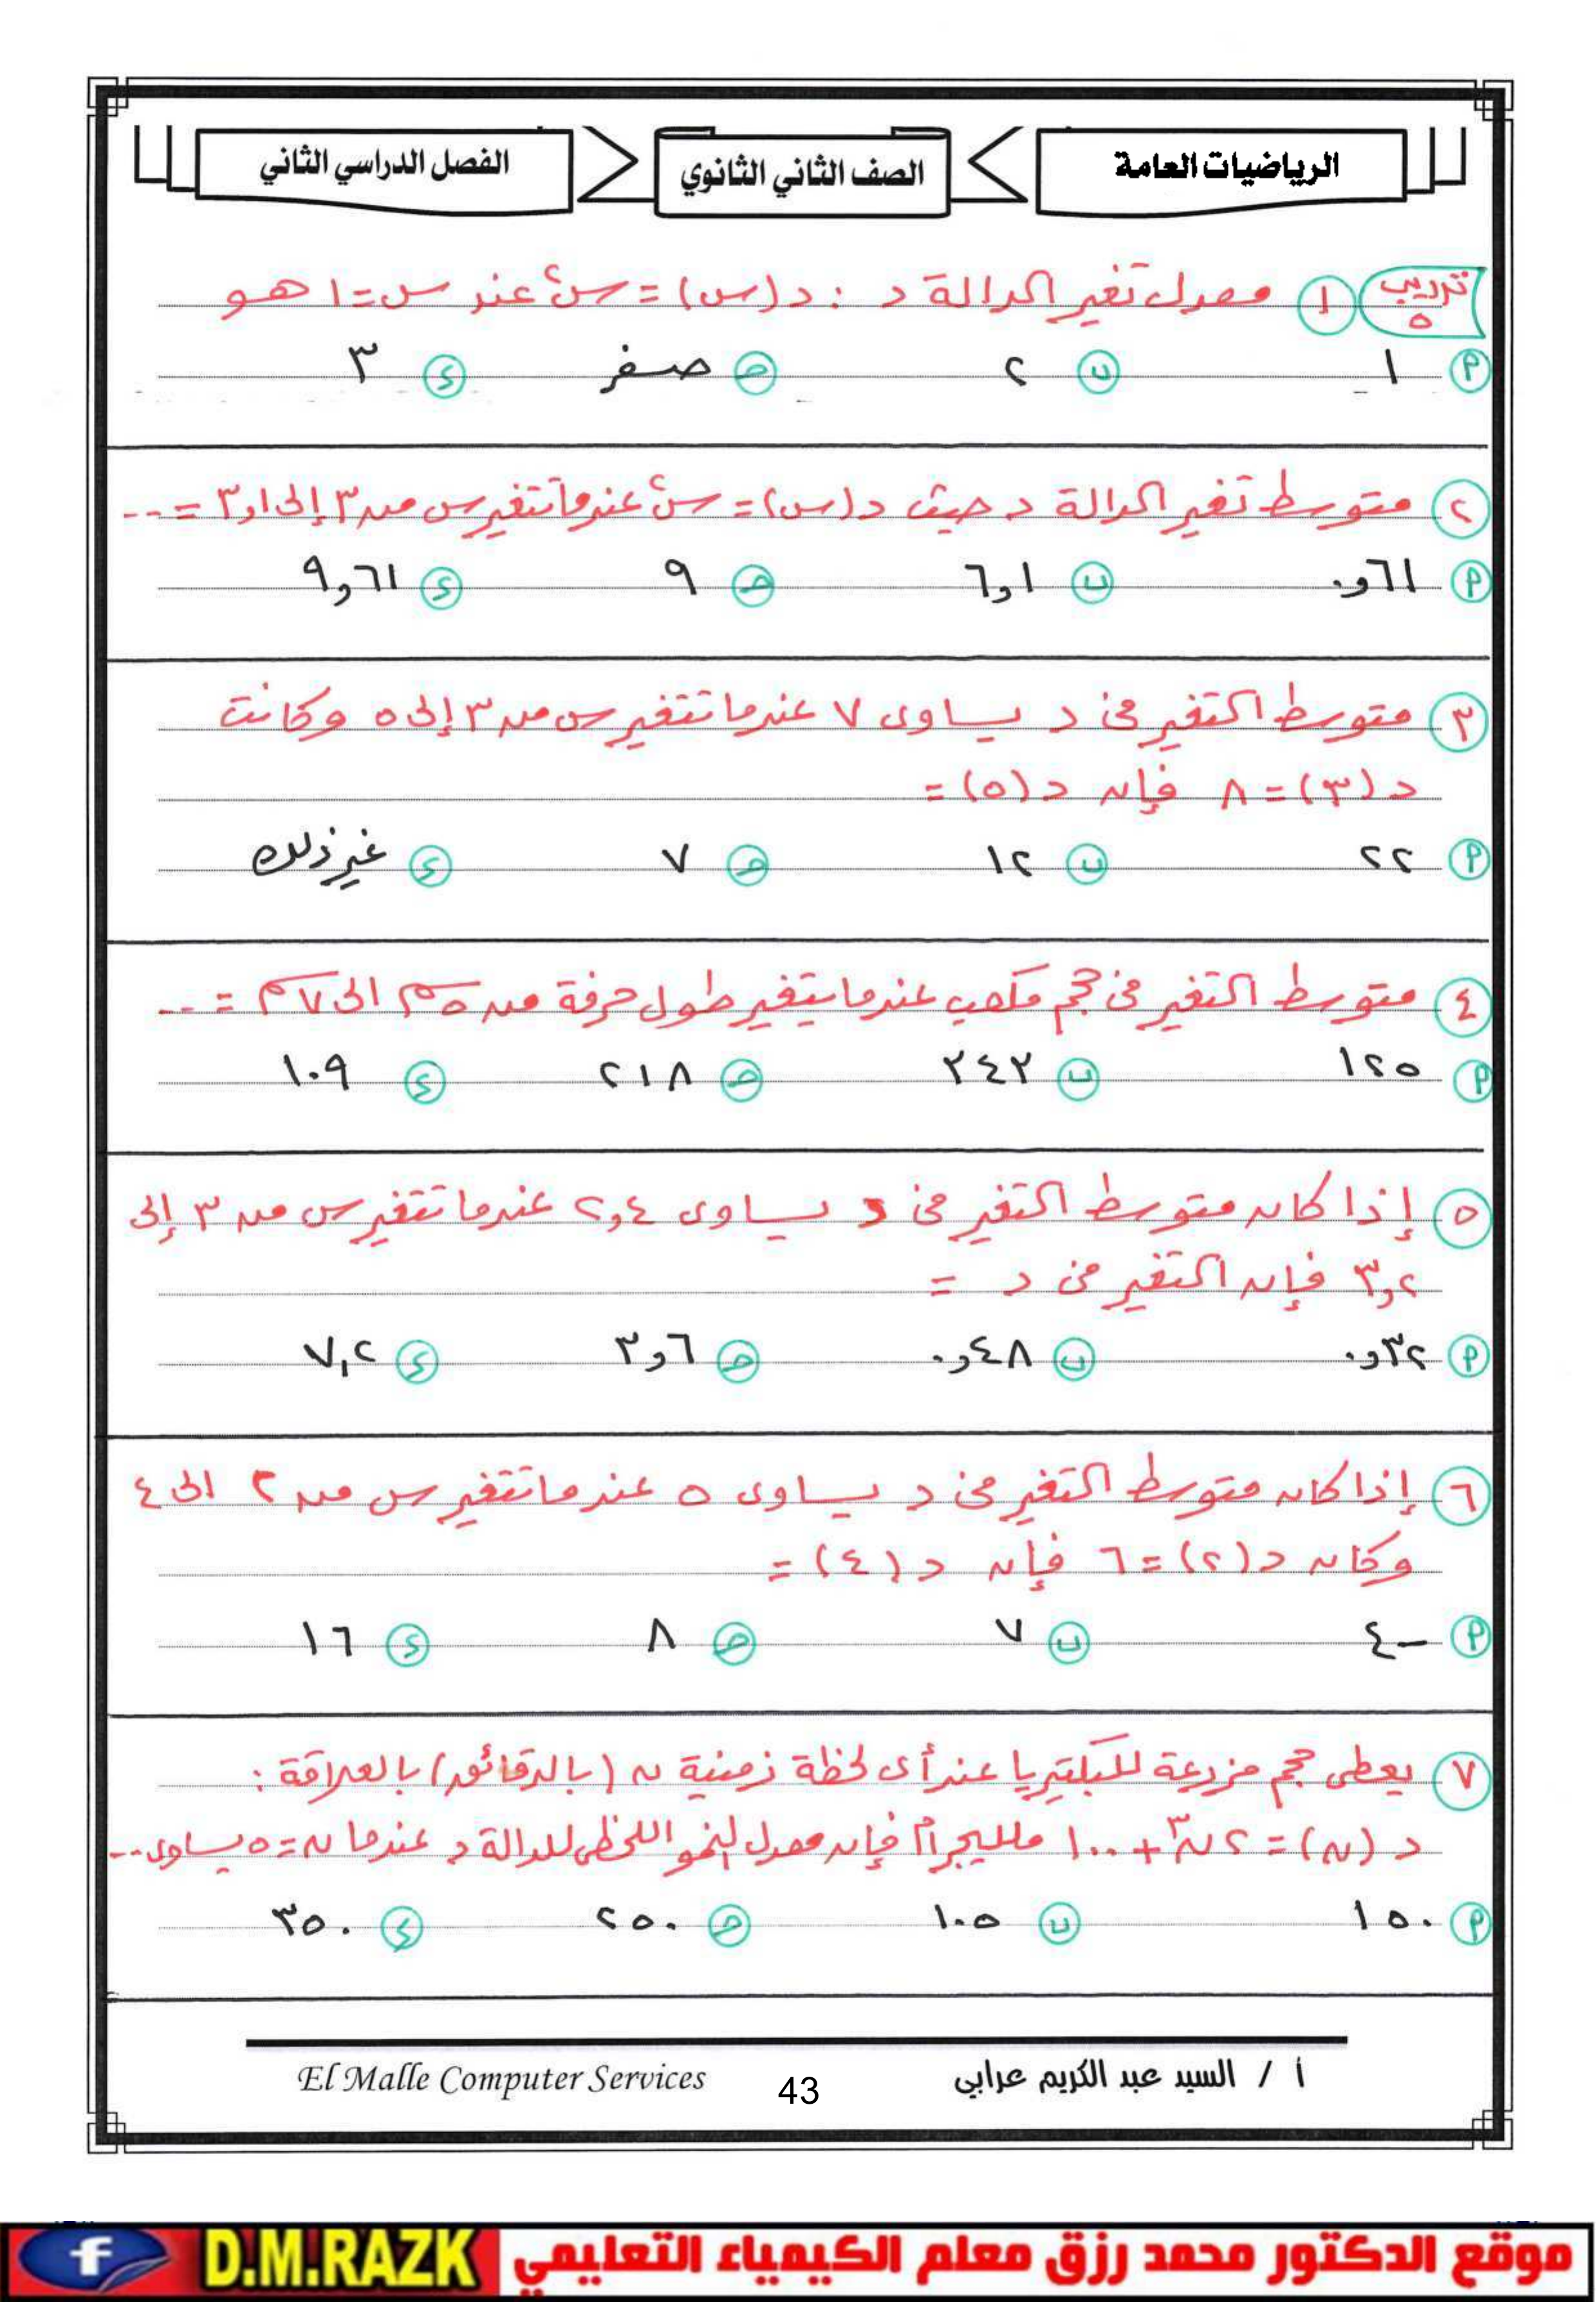 الرياضيات العامة
الصف الثاني الثانوي
الفصل الدراسي الثاني
تدريب ٥
١ معدل تغير الدالة د : د(س) = س٢ عند س = ١ هو
أ ١ ب ٢ ج صفر د ٣
٢ متوسط تغير الدالة د حيث د(س) = س٢ عندما تتغير س من ٣ إلى ٣,١ = ...
أ ٠,٦١ ب ٦,١ ج ٩ د ٩,٦١
٣ متوسط التغير في د يساوى ٧ عندما تتغير س من ٣ إلى ٥ وكانت
د(٣) = ٨ فإن د(٥) =
أ ٢٢ ب ١٢ ج ٧ د غير ذلك
٤ متوسط التغير في حجم مكعب عندما يتغير طول حرفة من ٥سم الى ٧سم = ...
أ ١٢٥ ب ٣٤٣ ج ٢١٨ د ١٠٩
٥ إذا كان متوسط التغير في د يساوى ٢,٤ عندما تتغير س من ٣ إلى
٣,٢ فإن التغير في د =
أ ٠,٣٢ ب ٠,٤٨ ج ٣,٦ د ٧,٢
٦ إذا كان متوسط التغير في د يساوى ٥ عندما تتغير س من ٢ الى ٤
وكان د(٢) = ٦ فإن د(٤) =
أ -٤ ب ٧ ج ٨ د ١٦
٧ يعطى حجم مزرعة للبكتيريا عند أى لحظة زمنية ن (بالدقائق) بالعلاقة :
د(ن) = ٢ن٣ + ١٠٠ ملليجرام فإن معدل النمو اللحظى للدالة د عندما ن = ٥ يساوى ...
أ ١٥٠ ب ١٠٥ ج ٢٥٠ د ٣٥٠
أ / السيد عبد الكريم عرابي
43
El Malle Computer Services
موقع الدكتور محمد رزق معلم الكيمياء التعليمي
D.M.RAZK
f